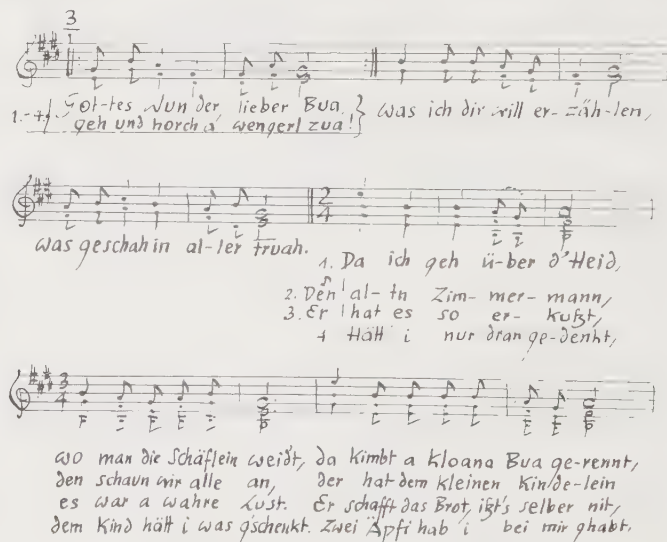 3
1.-4. Gottes Nun der lieber Bua, } was ich dir will er-zäh-len,
geh und horch a' wengerl zua!
was geschah in al-ler Fruah.
2
4
1. Da ich geh ü-ber d'Heid,
2. Den al-tn Zim-mer-mann,
3. Er hat es so er-kußt,
4 Hätt i nur dran ge-denkt,
3
4
wo man die Schäflein weid't, da kimbt a kloana Bua ge-rennt,
den schaun wir alle an, der hat dem kleinen Kin/de-lein
es war a wahre Lust. Er schafft das Brot, ißt's selber nit,
dem Kind hätt i was g'schenkt. Zwei Äpfi hab i bei mir ghabt.